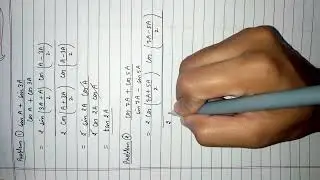 Problem ① sin A + sin 3A
cos A + cos 3A
= 2 sin (3A + A / 2) cos (A - 3A / 2)
2 cos (A + 3A / 2) cos (A - 3A / 2)
= 2 sin 2A cos A
2 cos 2A cos A
= tan 2A
Problem ② cos 7A + cos 5A
sin 7A - sin 5A
= 2 cos (7A + 5A / 2) cos (7A - 5A / 2)
2